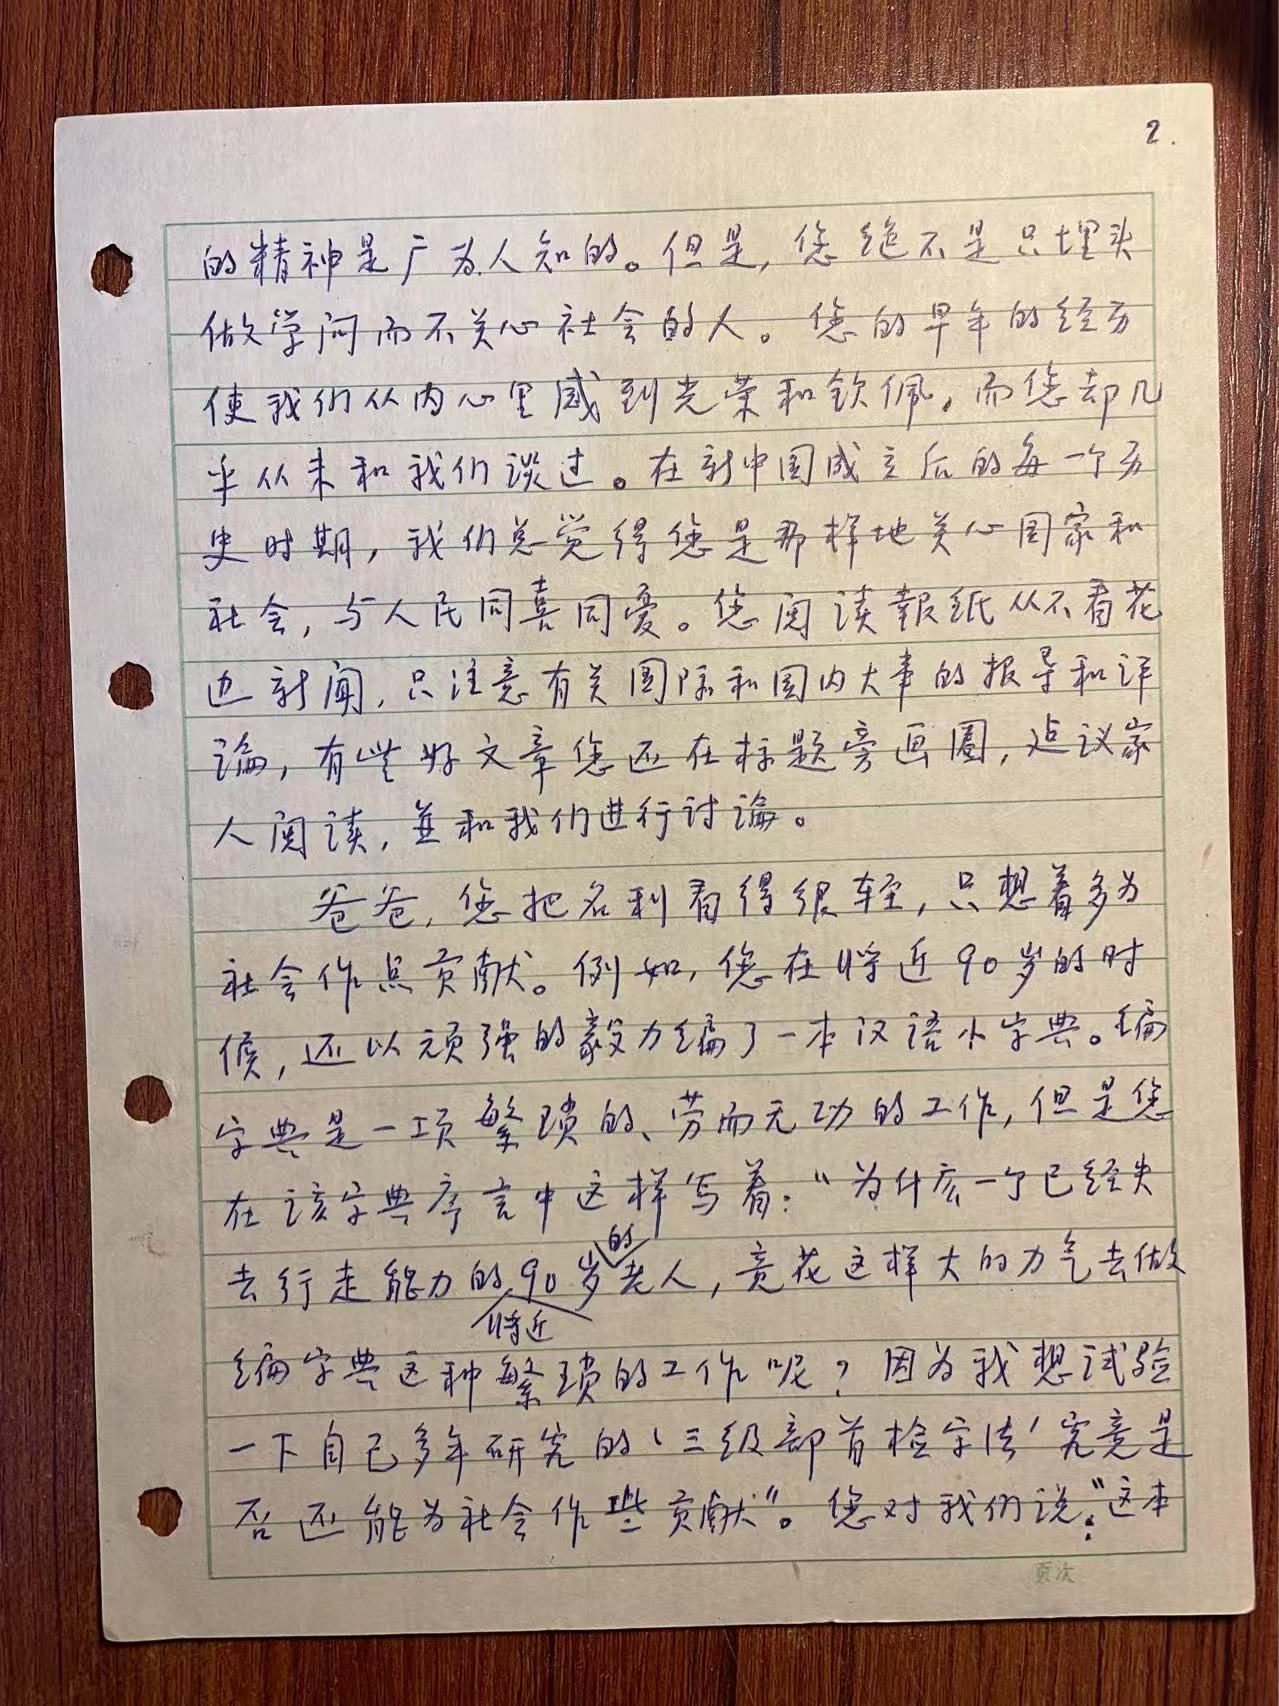 2.
的精神是广为人知的。但是,您绝不是只埋头
做学问而不关心社会的人。您的早年的经历
使我们从内心里感到光荣和钦佩,而您却几
乎从来和我们谈过。在新中国成立后的每一个历
史时期,我们总觉得您是那样地关心国家和
社会,与人民同喜同爱。您阅读報纸从不看花
边新闻,只注意有关国际和国内大事的报导和评
论,有些好文章您还在标题旁画圈,建议家
人阅读,並和我们进行讨论。
爸爸,您把名利看得很轻,只想着多为
社会作点贡献。例如,您在将近90岁的时
候,还以顽强的毅力编了一本汉语小字典。编
字典是一项繁琐的、劳而无功的工作,但是您
在该字典序言中这样写着:“为什么一个已经失
去行走能力的将近90岁的老人,竟花这样大的力气去做
编字典这种繁琐的工作呢?因为我想试验
一下自己多年研究的‘三级部首检字法’究竟是
否还能为社会作些贡献”。您对我们说:“这本
页次